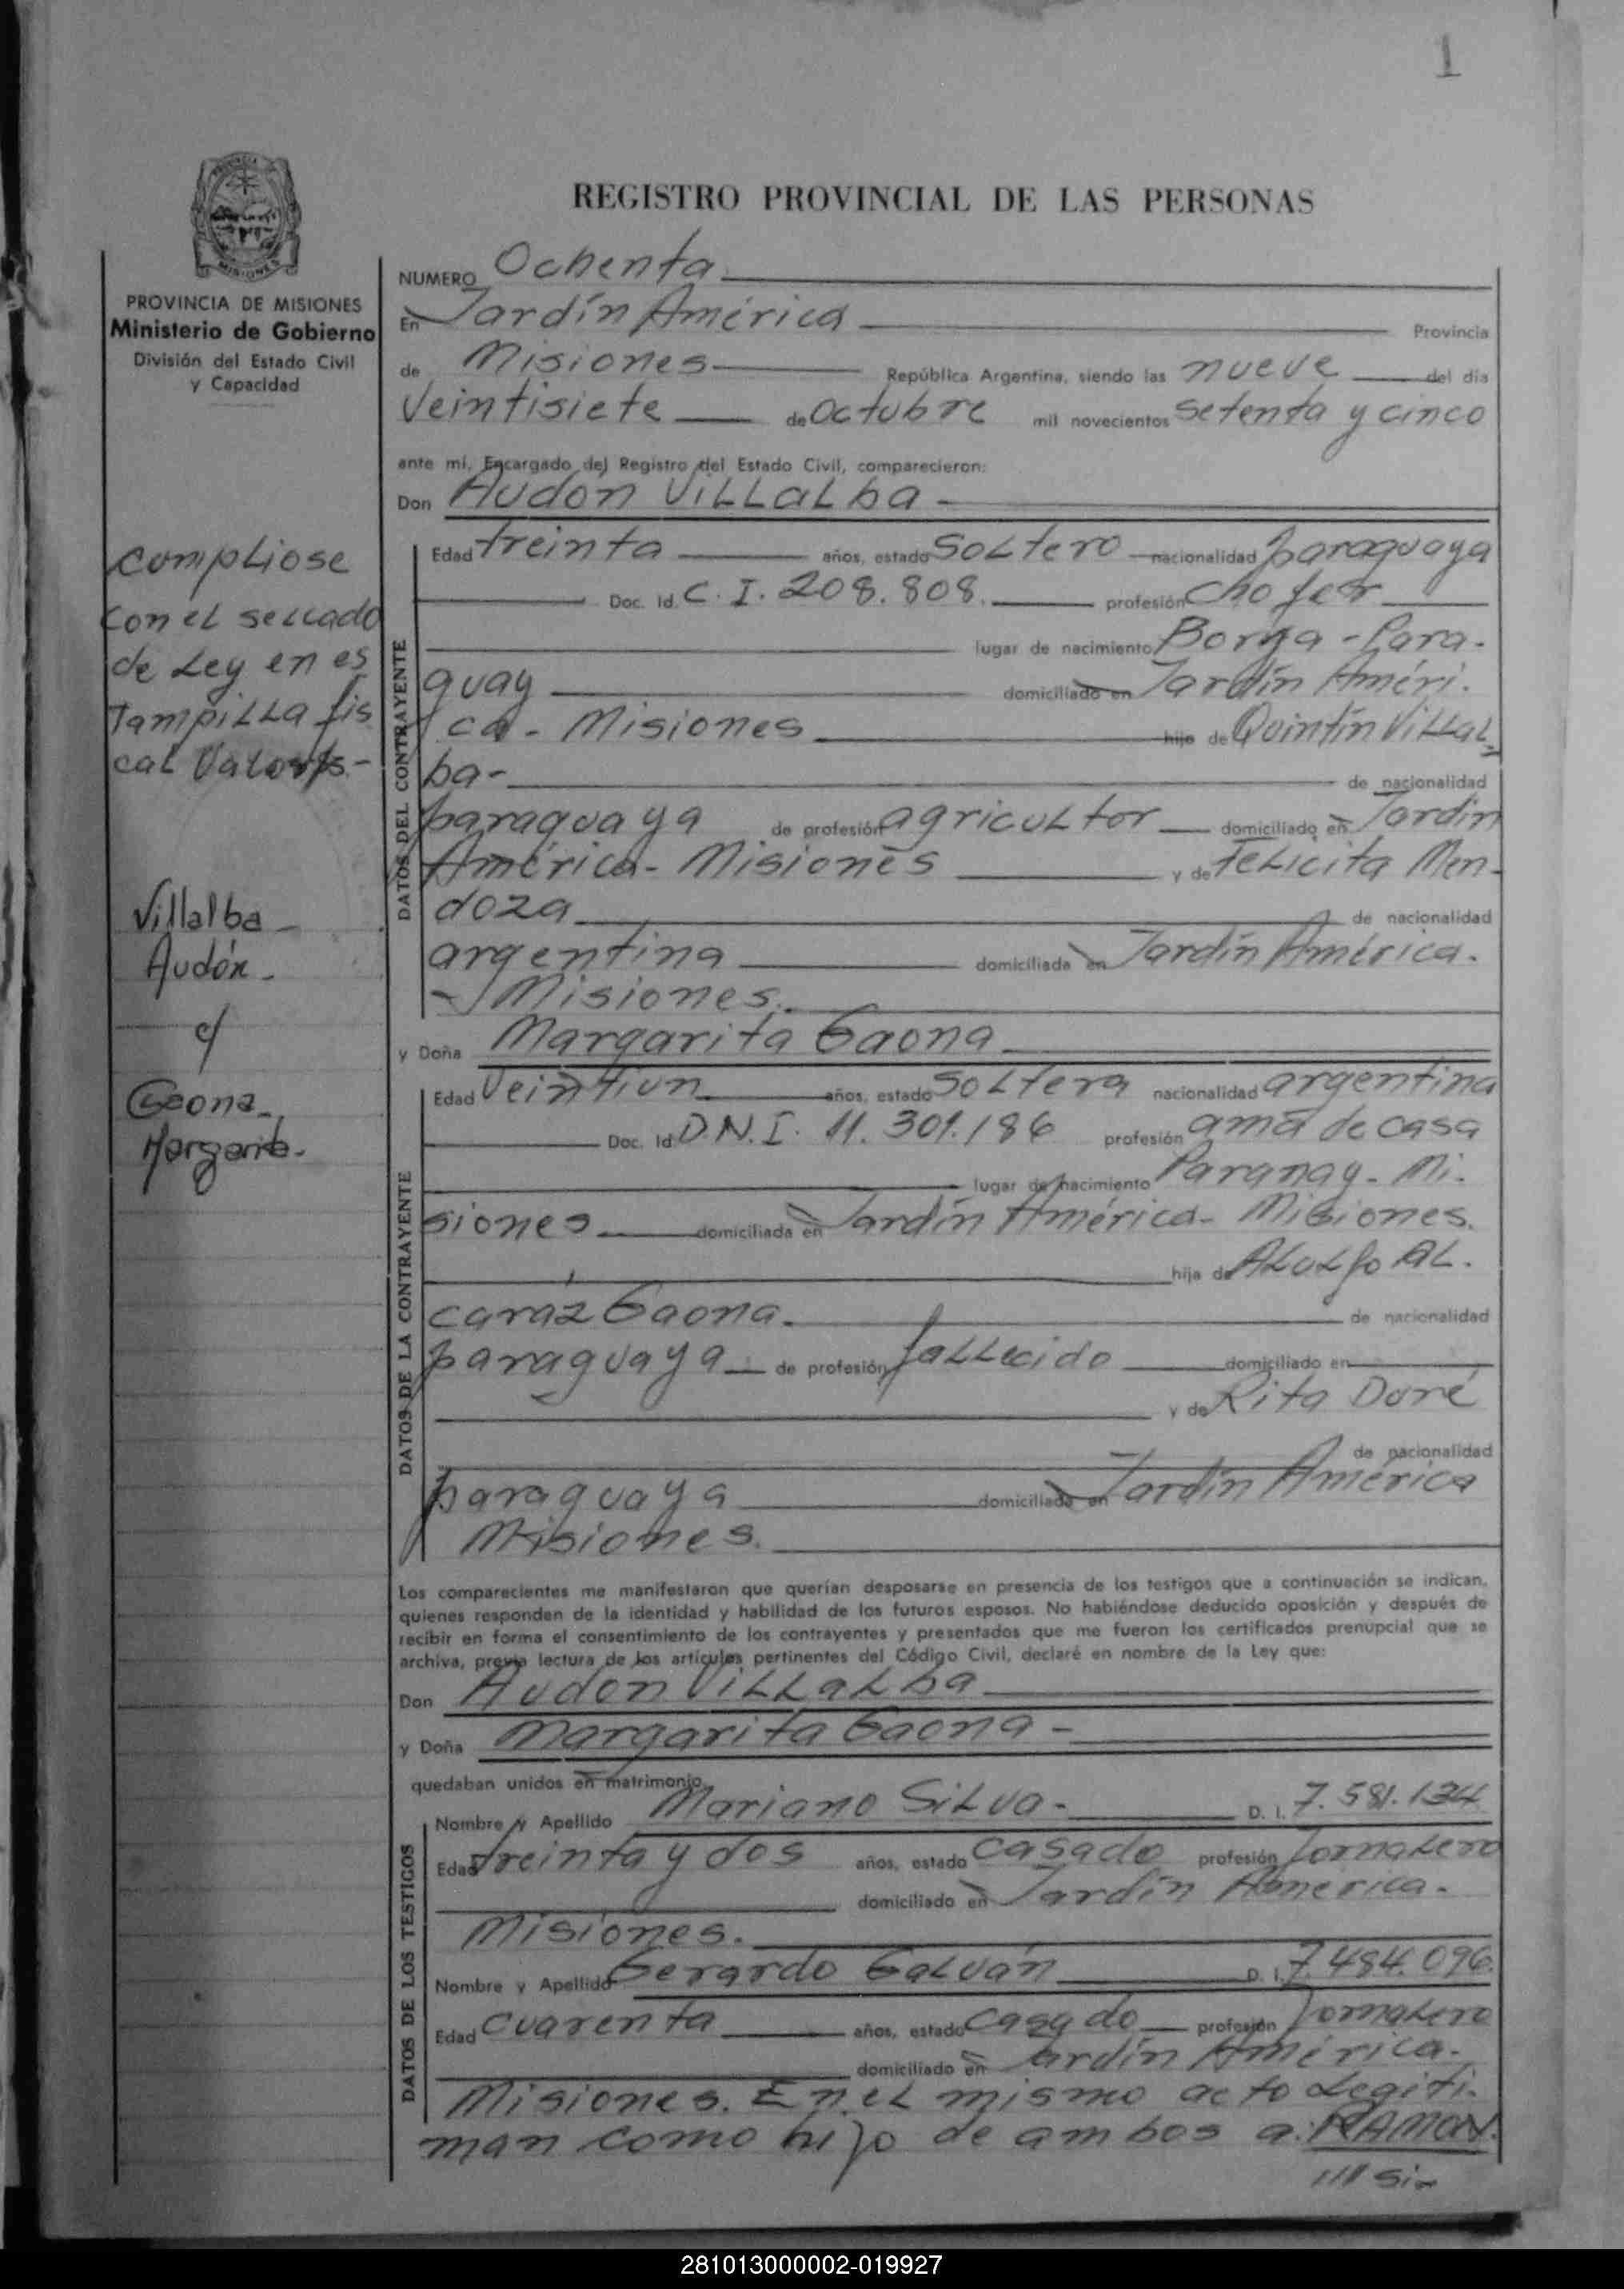 1
REGISTRO PROVINCIAL DE LAS PERSONAS
MISIONES
PROVINCIA DE MISIONES
Ministerio de Gobierno
División del Estado Civil
y Capacidad
Compliose
con el sellado
de Ley en es
tampilla fis
cal
Villalba
Audón.
c/
Gaona
Margarita.
NUMERO Ochenta
En Jardín América Provincia
de Misiones República Argentina, siendo las nueve del día
Veintisiete de Octubre mil novecientos setenta y cinco
ante mí, Encargado del Registro del Estado Civil, comparecieron:
Don Audon Villalba
DATOS DEL CONTRAYENTE
Edad treinta años, estado Soltero nacionalidad paraguaya
Doc. Id. C. I. 208.808. profesión Chofer
lugar de nacimiento Borja - Para-
guay domiciliado en Jardín Améri.
ca - Misiones hijo de Quintín Villal-
ba- de nacionalidad
paraguaya de profesión agricultor domiciliado en Jardin
América - Misiones y de Felicita Men-
doza de nacionalidad
argentina domiciliada en Jardín América.
- Misiones.
y Doña Margarita Gaona
DATOS DE LA CONTRAYENTE
Edad Veintiun años, estado Soltera nacionalidad argentina
Doc. Id. D.N.I. 11.301.186 profesión ama de casa
lugar de nacimiento Paranay - Mi.
siones domiciliada en Jardín América - Misiones.
hija de AL.
caráz Gaona. de nacionalidad
paraguaya de profesión fallecido domiciliado en
y de Rita Doré
de nacionalidad
paraguaya domiciliada en Jardín América
Misiones.
Los comparecientes me manifestaron que querían desposarse en presencia de los testigos que a continuación se indican,
quienes responden de la identidad y habilidad de los futuros esposos. No habiéndose deducido oposición y después de
recibir en forma el consentimiento de los contrayentes y presentados que me fueron los certificados prenupcial que se
archiva, previa lectura de los artículos pertinentes del Código Civil, declaré en nombre de la Ley que:
Don Audon Villalba
y Doña Margarita Gaona -
quedaban unidos en matrimonio.
DATOS DE LOS TESTIGOS
Nombre y Apellido Mariano Silva - D. I. 7.581.134
Edad treinta y dos años, estado Casado profesión Jornalero
domiciliado en Jardín America.
Misiones.
Nombre y Apellido Gerardo Galván D. I. 7.484.096.
Edad Cuarenta años, estado Casado profesión Jornalero
domiciliado en Jardín América.
Misiones. En el mismo acto Legiti-
man como hijo de ambos a: RAMON.
/// si-
281013000002-019927